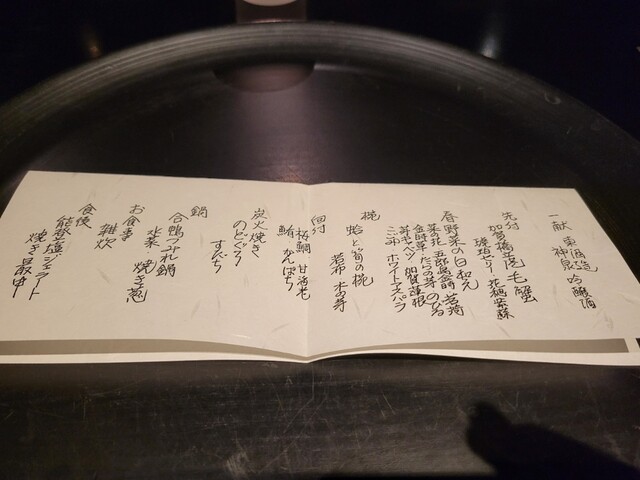 一献 東酒造
神泉 吟醸酒
先付
加賀橋立港 毛蟹
琥珀ゼリー 花穂紫蘇
春野菜の白和え
菜の花 五郎島金時 若筍
金時草 たらの芽 のびる
芽キャベツ 加賀蓮根
こごみ ホワイトアスパラ
椀
蛤と筍の椀
若布 木の芽
向付
桜鯛 甘海老
鮪 かんぱち
炭火焼き
のどぐろ
すだち
鍋
合鴨つみれ鍋
水菜 焼き葱
お食事
雑炊
食後
能登塩ジェラート
焼き最中